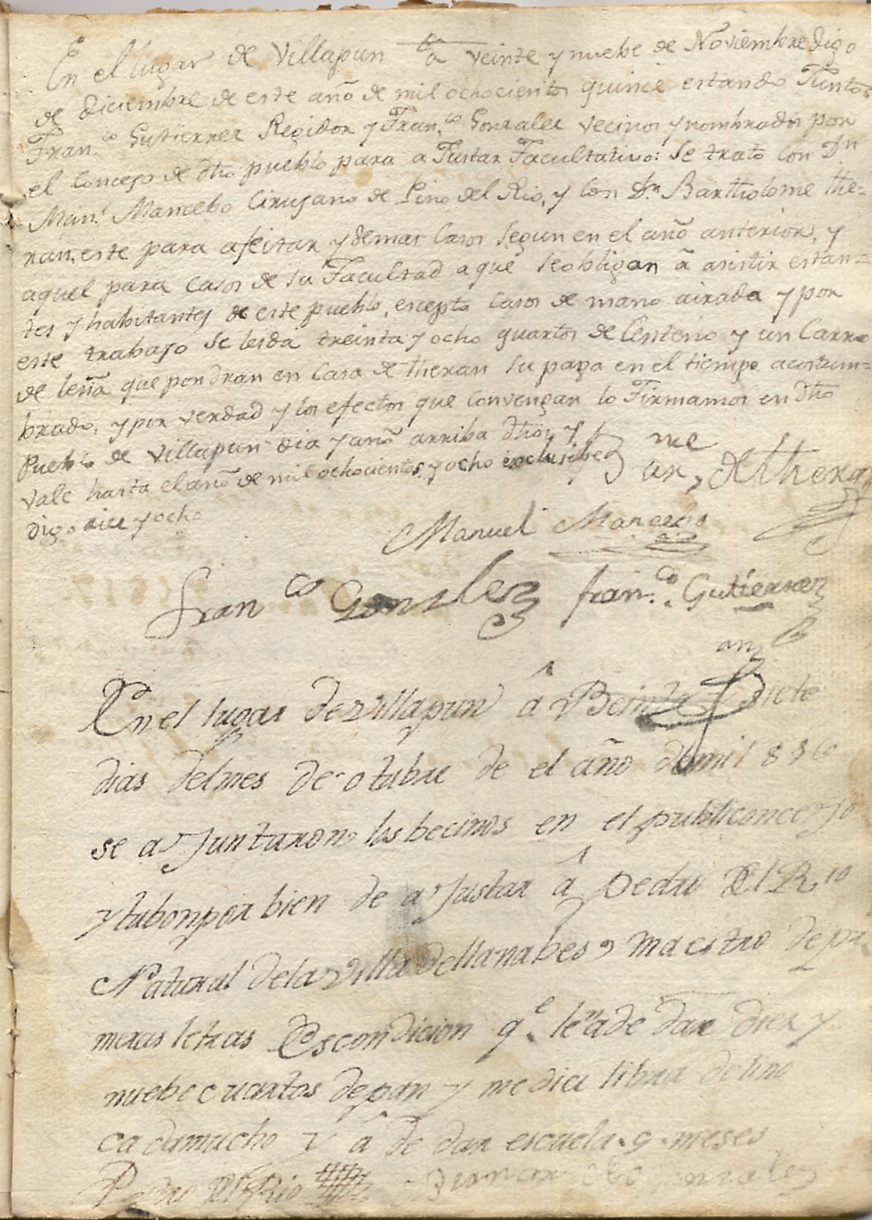 En el lugar de Villapun â veinte y nuebe de Noviembre digo
de diciembre de este año de mil ochocientos quince estando Juntos
Fran.co Gutierrez Regidor y Fran.co Gonzalez vecinos y nombrados por
el Concejo de dho pueblo para aJustar Facultativo: Se trato con Dn
Man.l Mancebo Cirujano de Pino del Rio, y con Dn Bartholome the=
ran, este para afeitar y demas Casos segun en el año anterior, y
aquel para Casos de su Facultad a que se obligan â asistir estan=
tes y habitantes de este pueblo, escepto Casos de mano airada y por
este trabajo se les da treinta y ocho quartos de Centeno y un Carro
de leña que pondran en Casa de theran su paga en el tiempo acostum=
brado, y por verdad y los efectos que convengan lo Firmamos en dho
Pueblo de Villapun dia y año arriba dhos y
Vale hasta el año de mil ochocientos y ocho inclusibe
digo diez y ocho
Manuel Mancebo
Fran co Gonzalez fran.co Gutierrez
En el lugar de Villapun â Beinte Siete
dias delmes de otubre de el año demil 8
se aJuntaron los becinos en el publiconcejo
y tubonpor bien de aJustar â Pedro Del Rio
Natural dela Villa dellanabes maestro de pri
meras letras Escondicion q.e le ade dar diez y
nuebe cuartos depan y media libra delino
cadamucho y â de dar escuela 9 meses
Pedro Del Rio Gonzalez